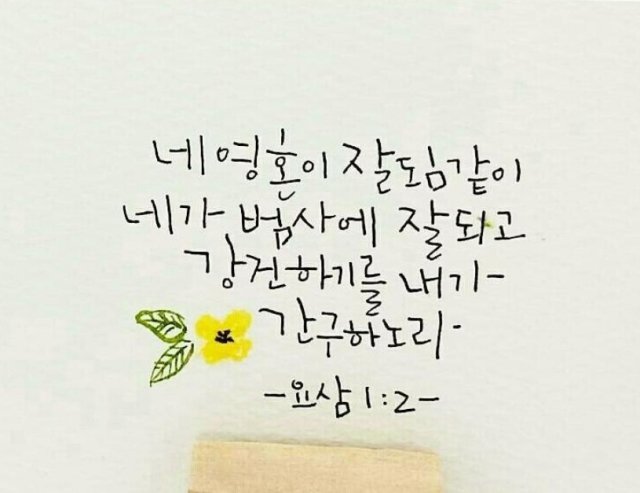 네 영혼이 잘됨같이
네가 범사에 잘되고
강건하기를 내가
간구하노라
-요삼 1:2-